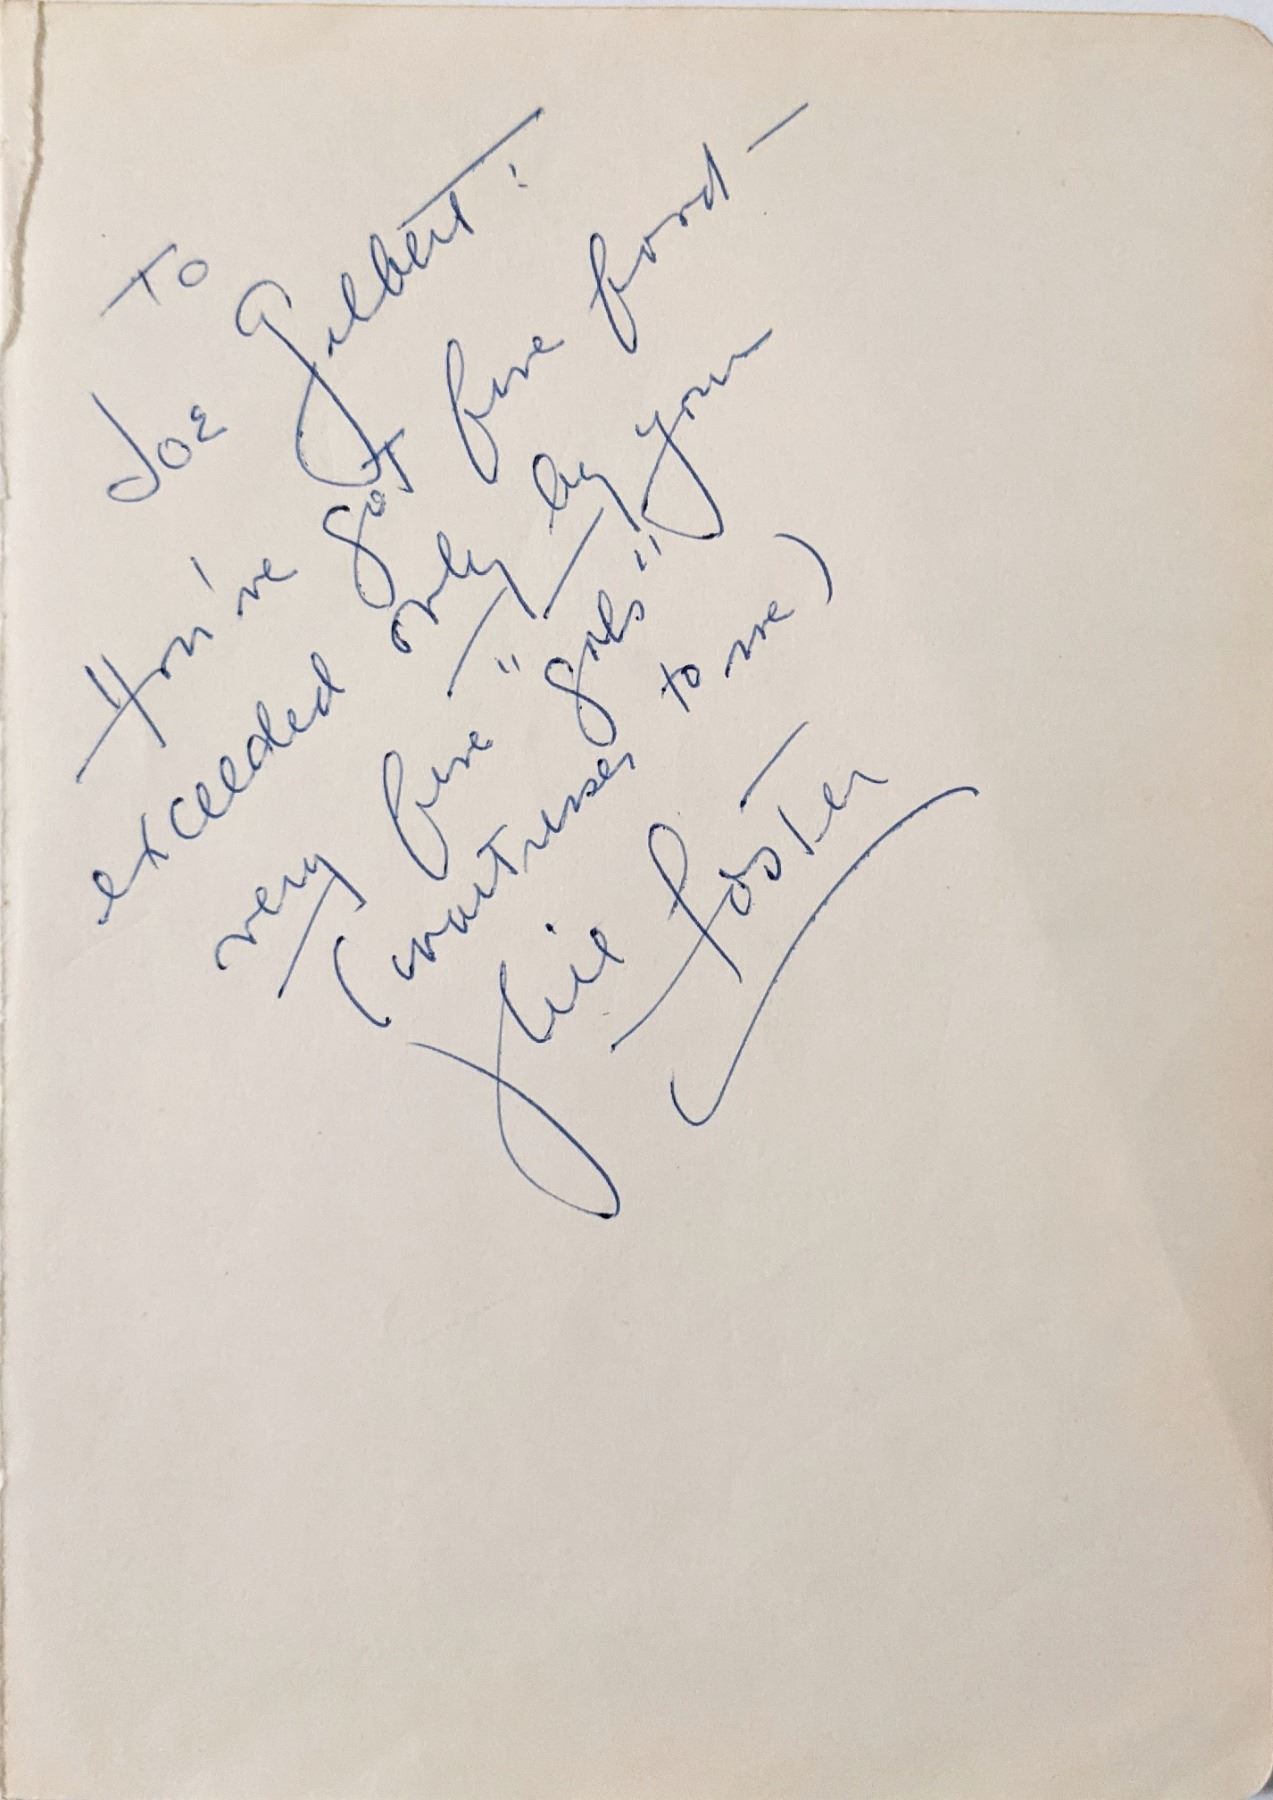 To
Joe Gilbert:
You've got fine food—
exceeded only by your
very fine "gals"
(waitresses to me)
Phil Foster